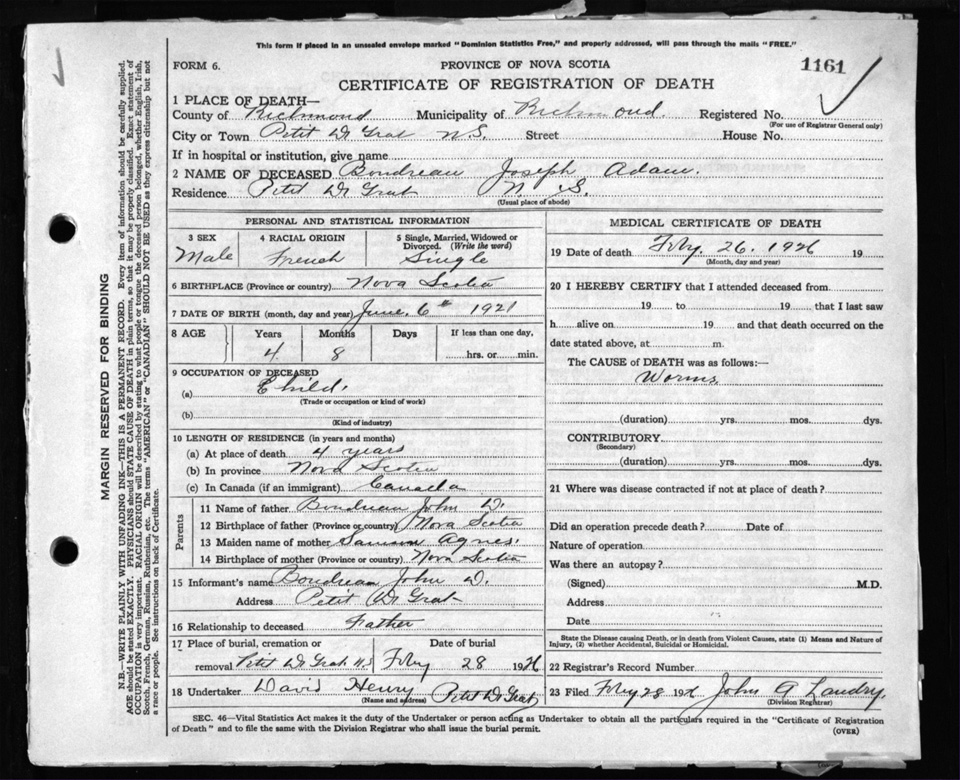 This form if placed in an unsealed envelope marked "Dominion Statistics Free," and properly addressed, will pass through the mails "FREE."
FORM 6.
PROVINCE OF NOVA SCOTIA
1161
CERTIFICATE OF REGISTRATION OF DEATH
1 PLACE OF DEATH—
County of Richmond Municipality of Richmond. Registered No.
(For use of Registrar General only)
City or Town Petit De Grat N.S. Street House No.
If in hospital or institution, give name
2 NAME OF DECEASED Boudreau Joseph Adam.
Residence Petit De Grat N. S.
(Usual place of abode)
PERSONAL AND STATISTICAL INFORMATION
3 SEX 4 RACIAL ORIGIN 5 Single, Married, Widowed or Divorced. (Write the word)
Male French Single
6 BIRTHPLACE (Province or country) Nova Scotia
7 DATE OF BIRTH (month, day and year) June 6th 1921
8 AGE Years Months Days If less than one day,
4 8 hrs. or min.
9 OCCUPATION OF DECEASED
(a) Child.
(Trade or occupation or kind of work)
(b)
(Kind of industry)
10 LENGTH OF RESIDENCE (in years and months)
(a) At place of death 4 years
(b) In province Nova Scotia
(c) In Canada (if an immigrant) Canada
Parents
11 Name of father Boudreau John D.
12 Birthplace of father (Province or country) Nova Scotia
13 Maiden name of mother Samson Agnes.
14 Birthplace of mother (Province or country) Nova Scotia
15 Informant's name Boudreau John D.
Address Petit De Grat
16 Relationship to deceased Father
17 Place of burial, cremation or removal Petit De Grat N.S Date of burial Feby 28 1926
18 Undertaker David Henry Petit De Grat
(Name and address)
MEDICAL CERTIFICATE OF DEATH
19 Date of death Feby. 26. 1926 19
(Month, day and year)
20 I HEREBY CERTIFY that I attended deceased from
19 to 19 that I last saw
h alive on 19 and that death occurred on the
date stated above, at m.
The CAUSE of DEATH was as follows:—
Worms
(duration) yrs. mos. dys.
CONTRIBUTORY
(Secondary)
(duration) yrs. mos. dys.
21 Where was disease contracted if not at place of death?
Did an operation precede death? Date of
Nature of operation
Was there an autopsy?
(Signed) M.D.
Address
Date
State the Disease causing Death, or in death from Violent Causes, state (1) Means and Nature of Injury, (2) whether Accidental, Suicidal or Homicidal.
22 Registrar's Record Number
23 Filed Feby 28 1926 John A Landry.
(Division Registrar)
SEC. 46—Vital Statistics Act makes it the duty of the Undertaker or person acting as Undertaker to obtain all the particulars required in the "Certificate of Registration
of Death" and to file the same with the Division Registrar who shall issue the burial permit.
(OVER)
MARGIN RESERVED FOR BINDING
N.B.—WRITE PLAINLY WITH UNFADING INK—THIS IS A PERMANENT RECORD. Every item of information should be carefully supplied.
AGE should be stated EXACTLY. PHYSICIANS should STATE CAUSE OF DEATH in plain terms, so that it may be properly classified. Exact statement of
OCCUPATION is very important. RACIAL ORIGIN will be described by stating to what people or tongue the deceased person belonged, whether English, Irish,
Scotch, French, German, Russian, Ruthenian, etc. The terms "AMERICAN" or "CANADIAN" SHOULD NOT BE USED as they express citizenship but not
a race or people. See instructions on back of Certificate.